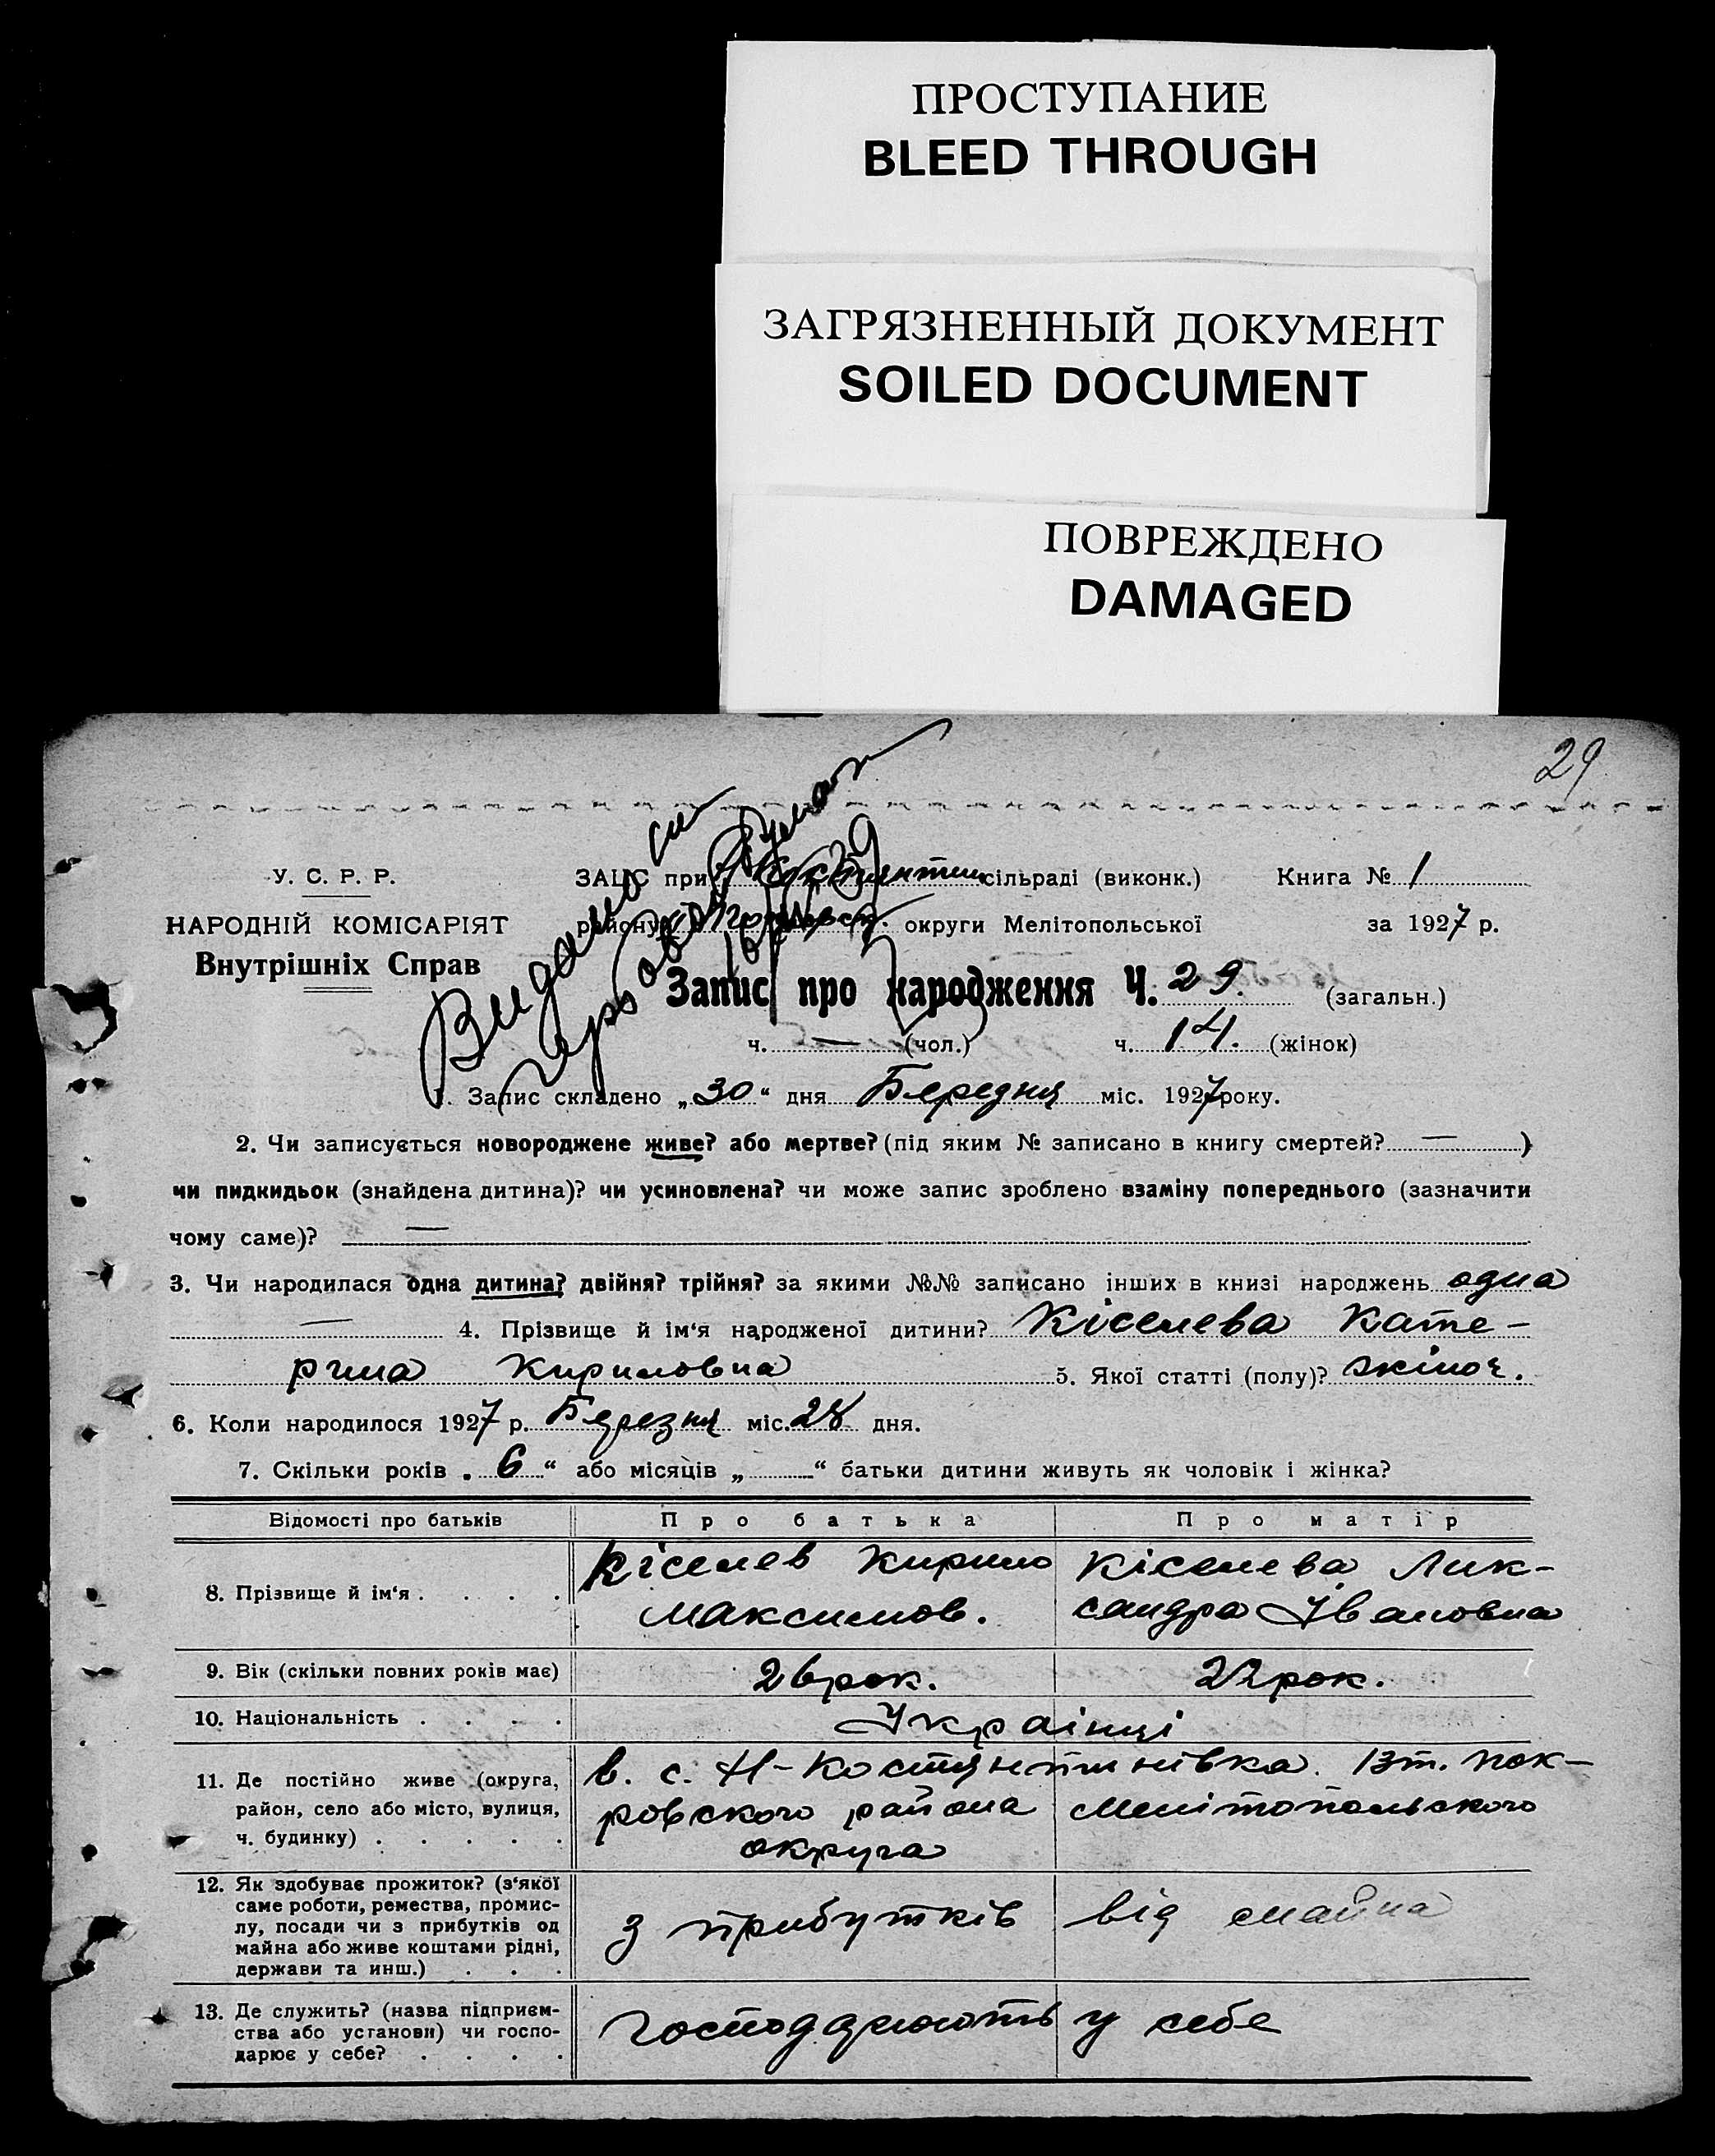 ПРОСТУПАНИЕ
BLEED THROUGH
ЗАГРЯЗНЕННЫЙ ДОКУМЕНТ
SOILED DOCUMENT
ПОВРЕЖДЕНО
DAMAGED
29
У. С. Р. Р.
НАРОДНІЙ КОМІСАРІЯТ
Внутрішніх Справ
ЗАЦС при сільраді (виконк.) Книга № 1
району округи Мелітопольської за 1927 р.
Запис про народження Ч. 29. (загальн.)
ч. — (чол.) ч. 14. (жінок)
1. Запис складено „30“ дня Березня міс. 1927 року.
2. Чи записується новороджене живе? або мертве? (під яким № записано в книгу смертей? — )
чи пидкидьок (знайдена дитина)? чи усиновлена? чи може запис зроблено взаміну попереднього (зазначити
чому саме)? —
3. Чи народилася одна дитина? двійня? трійня? за якими №№ записано інших в книзі народжень одна
— 4. Прізвище й ім‘я народженої дитини? Кіселева Кате-
рина Кириловна 5. Якої статті (полу)? жіноч.
6. Коли народилося 1927 р. Березня міс. 28 дня.
7. Скільки років „6“ або місяців „ “ батьки дитини живуть як чоловік і жінка?
Відомості про батьків Про батька Про матір
8. Прізвище й ім‘я . . . . Кіселев Кирило Максимов. Кіселева Лик-сандра Івановна
9. Вік (скільки повних років має) 26 рок. 22 рок.
10. Національність . . . . Українці
11. Де постійно живе (округа, район, село або місто, вулиця, ч. будинку) . . . . . в. с. Н-Костянтинівка. Пок-ровского района Мелітопольского округа
12. Як здобуває прожиток? (з‘якої саме роботи, ремества, промис-лу, посади чи з прибутків од майна або живе коштами рідні, держави та инш.) . . . з прибутків від майна
13. Де служить? (назва підприєм-ства або установи) чи госпо-дарює у себе? . . . . господарюють у себе